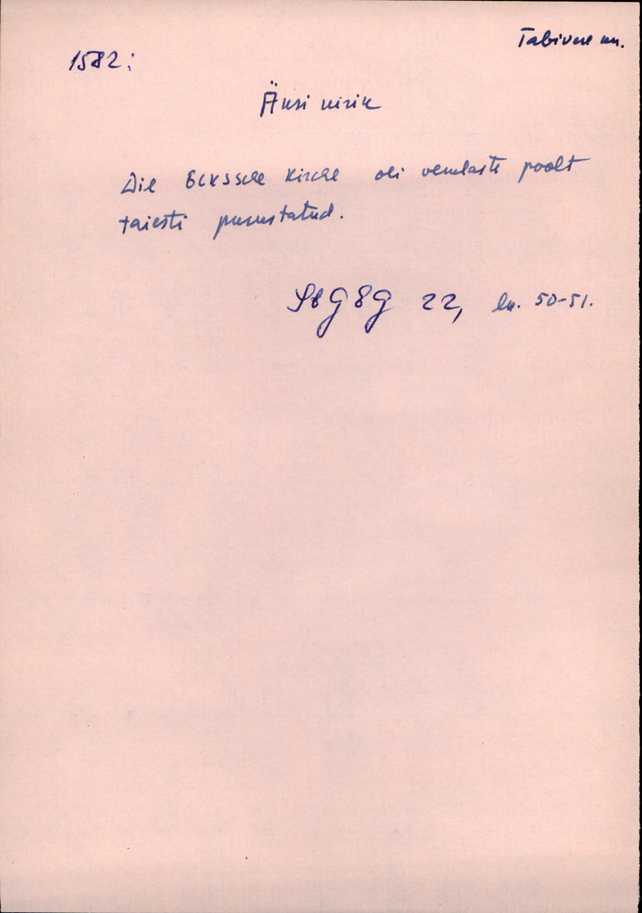 Tabivere kn.
1582:
Äksi kirik
Die Eckssche Kirche oli venelaste poolt
täiesti purustatud.
SbGEG 22, lk. 50-51.